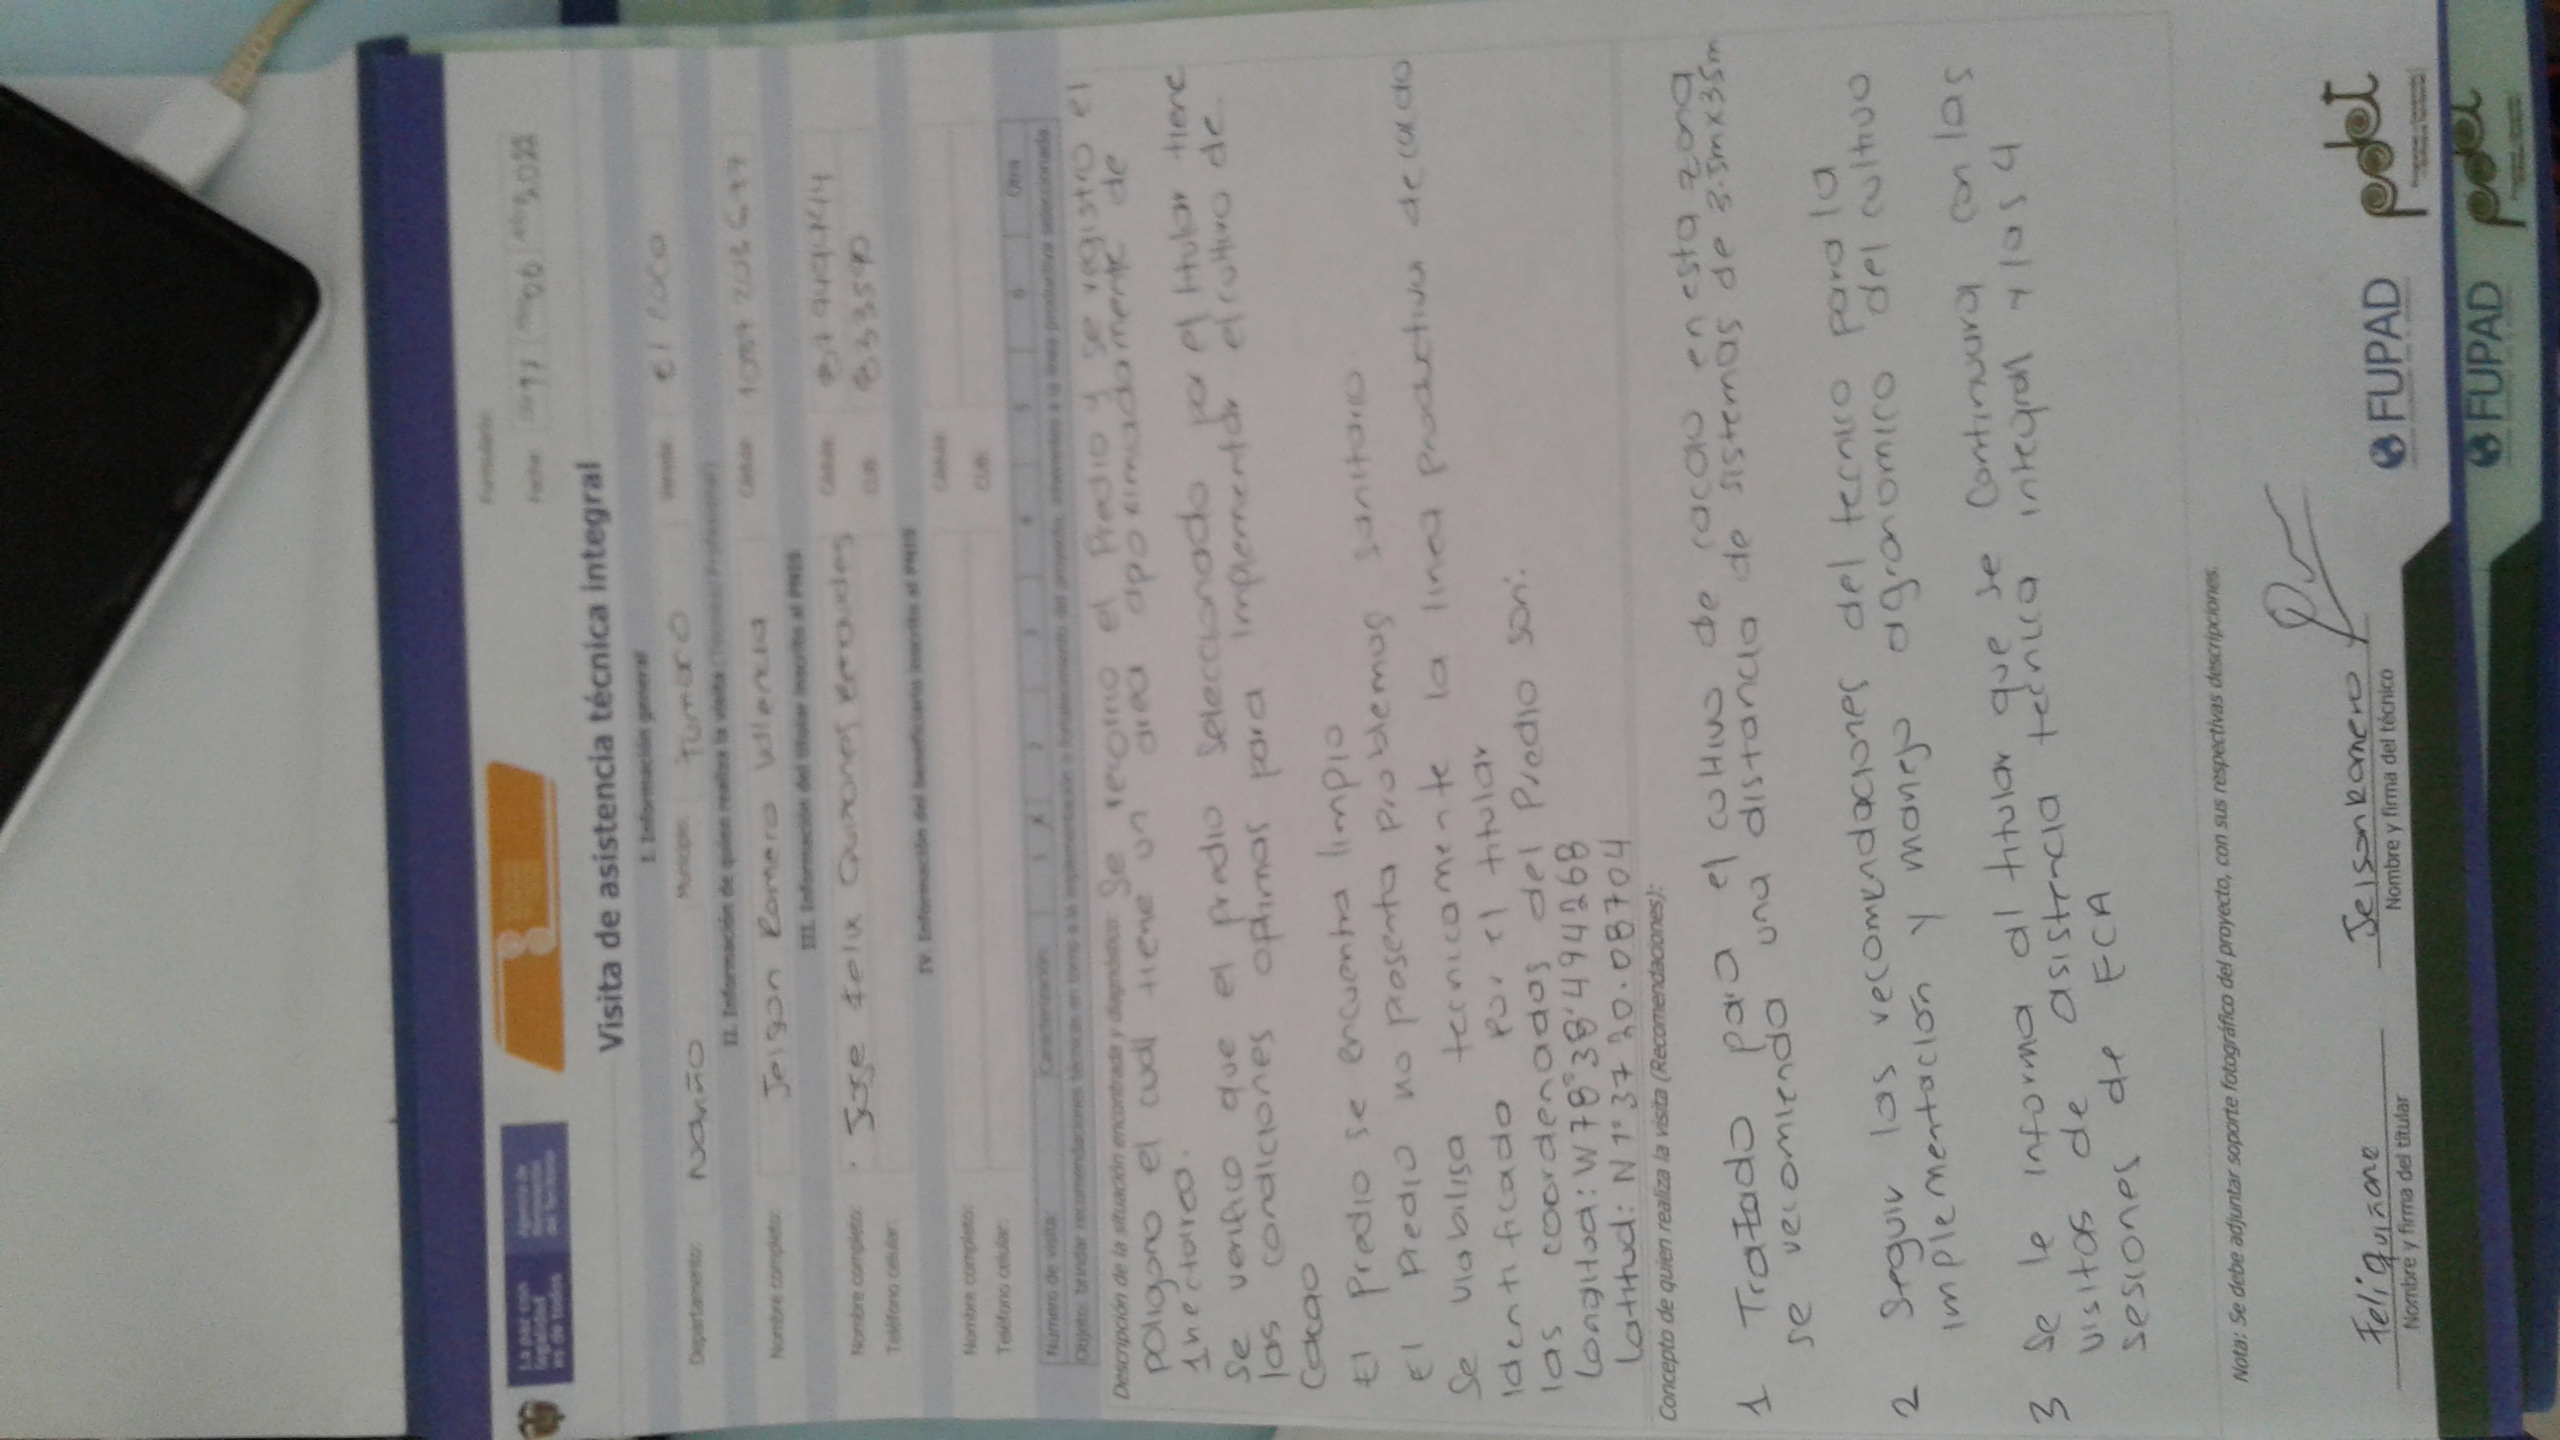 La paz con legalidad es de todos
Agencia de Renovación del Territorio
Formulario:
Fecha:
Visita de asistencia técnica integral
I. Información general
Departamento: Nariño Municipio: Tumaco Vereda: el coco
II. Información de quien realiza la visita
Nombre completo: Jeison Romero Valencia Cédula:
III. Información del titular inscrito al PNIS
Nombre completo: Jose felix Quiñones Cédula:
Teléfono celular: CUB:
IV. Información del beneficiario inscrito al PNIS
Nombre completo: Cédula:
Teléfono celular: CUB:
Número de visita: Caracterización 1 X 2 3 4 5 6 Otra
Objeto: brindar recomendaciones técnicas en torno a la implementación
Descripción de la situación encontrada y diagnóstico: Se recorrio el Predio y se registro el
poligono el cual tiene un area aproximadamente de
1 hectarea.
Se verifico que el predio seleccionado por el titular tiene
las condiciones optimas para implementar el cultivo de.
Cacao
El Predio se encuentra limpio
El predio no presenta problemas sanitario.
Se viabilisa tecnicamente la linea productiva de cacao
identificado por el titular
las coordenadas del Predio son:
Longitud: W 78°38'494268
Latitud: N 1° 37 20.08704
Concepto de quien realiza la visita (Recomendaciones):
1 Tratado para el cultivo de cacao en esta zona
se recomienda una distancia de sistemas de 3.5m x 3.5m
2 Seguir las recomendaciones del tecnico para la
implementación y manejo agronomico del cultivo
3 Se le informa al titular que se continuara con las
visitas de asistencia tecnica integral y las 4
sesiones de ECA
Nota: Se debe adjuntar soporte fotográfico del proyecto, con sus respectivas descripciones.
Feliquiñone
Nombre y firma del titular
Jeison Romero
Nombre y firma del técnico
FUPAD
pdet
FUPAD
pdet